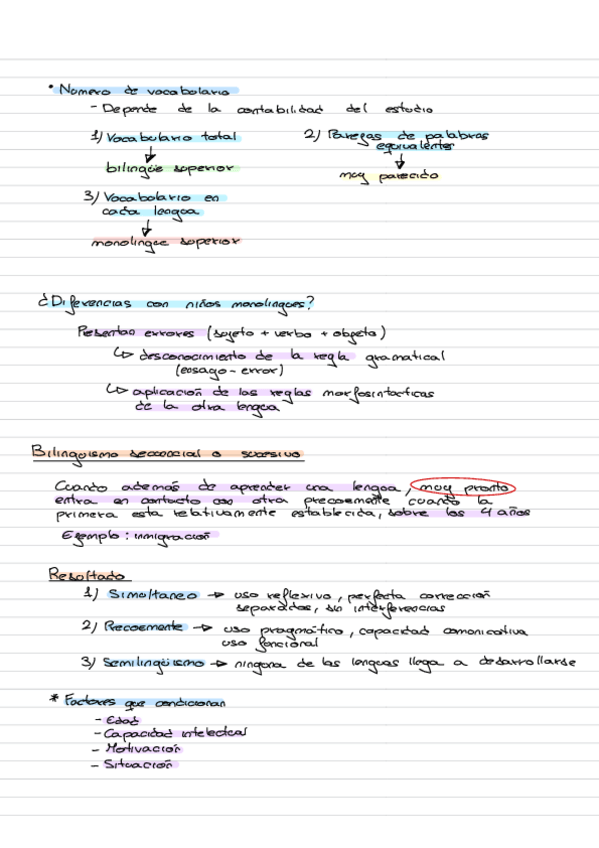 • Número de vocabulario
- Depende de la contabilidad del estudio
1) Vocabulario total
2) Parejas de palabras equivalentes
bilingüe superior
muy parecido
3) Vocabulario en
cada lengua
monolingüe superior
¿Diferencias con niños monolingües?
Presentan errores (sujeto + verbo + objeto)
↳ desconocimiento de la regla gramatical
(ensayo - error)
↳ aplicación de las reglas morfosintácticas
de la otra lengua
Bilingüismo secuencial o sucesivo
Cuando además de aprender una lengua, muy pronto
entra en contacto con otra precozmente cuando la
primera esta relativamente establecida, sobre los 4 años
Ejemplo: inmigración
Resultado
1) Simultaneo → uso reflexivo, perfecta corrección
separadas, sin interferencias
2) Precozmente → uso pragmático, capacidad comunicativa
uso funcional
3) Semilingüismo → ninguna de las lenguas llega a desarrollarse
* Factores que condicionan
- Edad
- Capacidad intelectual
- Motivación
- Situación